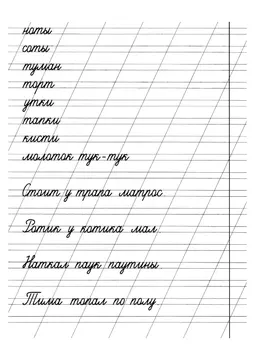 ноты
соты
туман
торт
утки
тапки
кисти
молоток тук-тук
Стоит у трапа матрос
Ротик у котика мал
Наткал паук паутины
Тима топал по полу